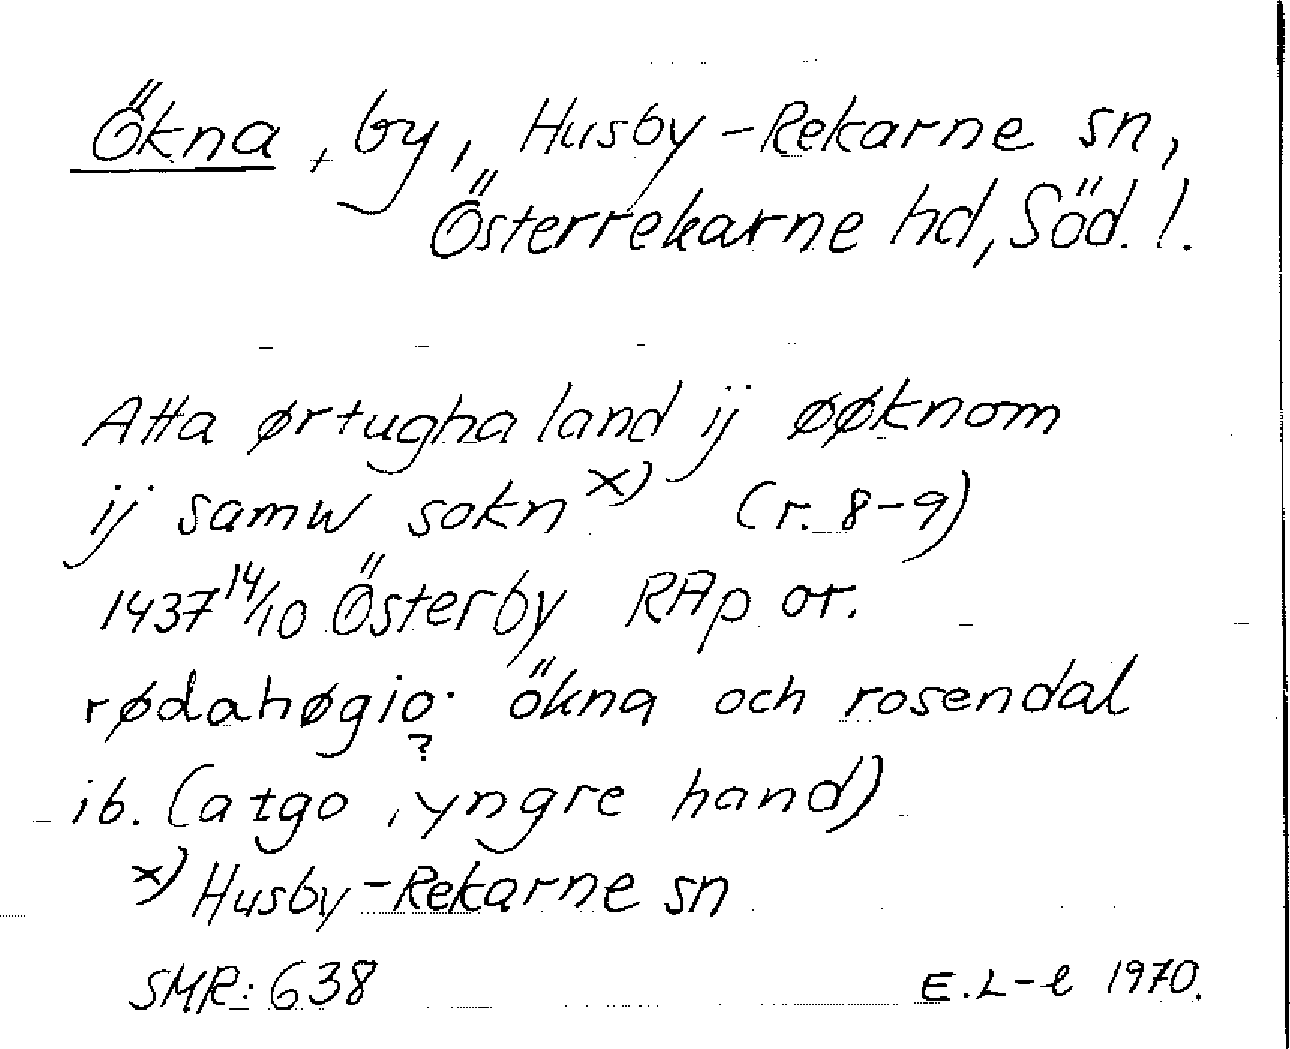 Ökna, by, Husby-Rekarne sn,
Österrekarne hd, Söd. l.
Atta ørtugha land ij øøknom
ij samw sokn x) (r. 8-9)
1437 14/10 Österby RAp or.
rødahøgio. ökna och rosendal
?
ib. (atgo, yngre hand)
x) Husby-Rekarne sn
SMR: 638 E. L-l 1970.